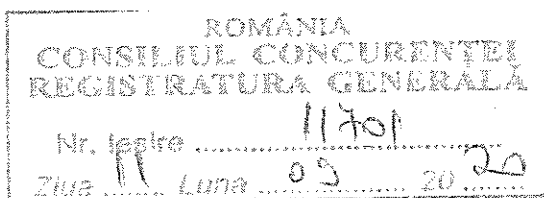 ROMÂNIA
CONSILIUL CONCURENȚEI
REGISTRATURA GENERALĂ
Nr. Ieșire ........ 11701
Ziua 11 Luna 09 20 20